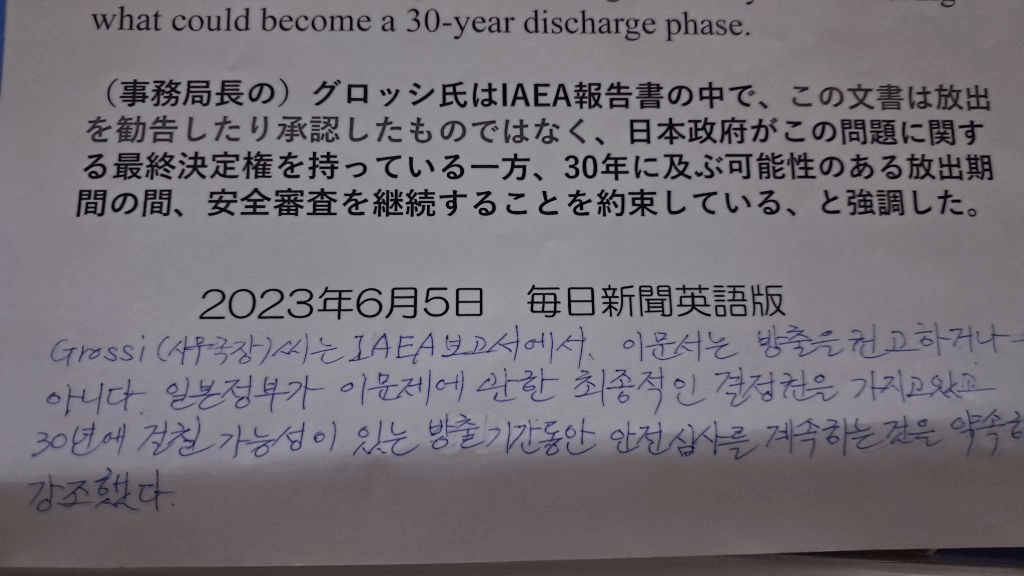 what could become a 30-year discharge phase.
（事務局長の）グロッシ氏はIAEA報告書の中で、この文書は放出
を勧告したり承認したものではなく、日本政府がこの問題に関す
る最終決定権を持っている一方、30年に及ぶ可能性のある放出期
間の間、安全審査を継続することを約束している、と強調した。
2023年6月5日 毎日新聞英語版
Grossi (사무국장)씨는 IAEA보고서에서, 이문서는 방출을 권고하거나
아니다. 일본정부가 이문제에 관한 최종적인 결정권을 가지고있고
30년에 걸칠 가능성이 있는 방출기간동안 안전심사를 계속하는것을 약속하
강조했다.